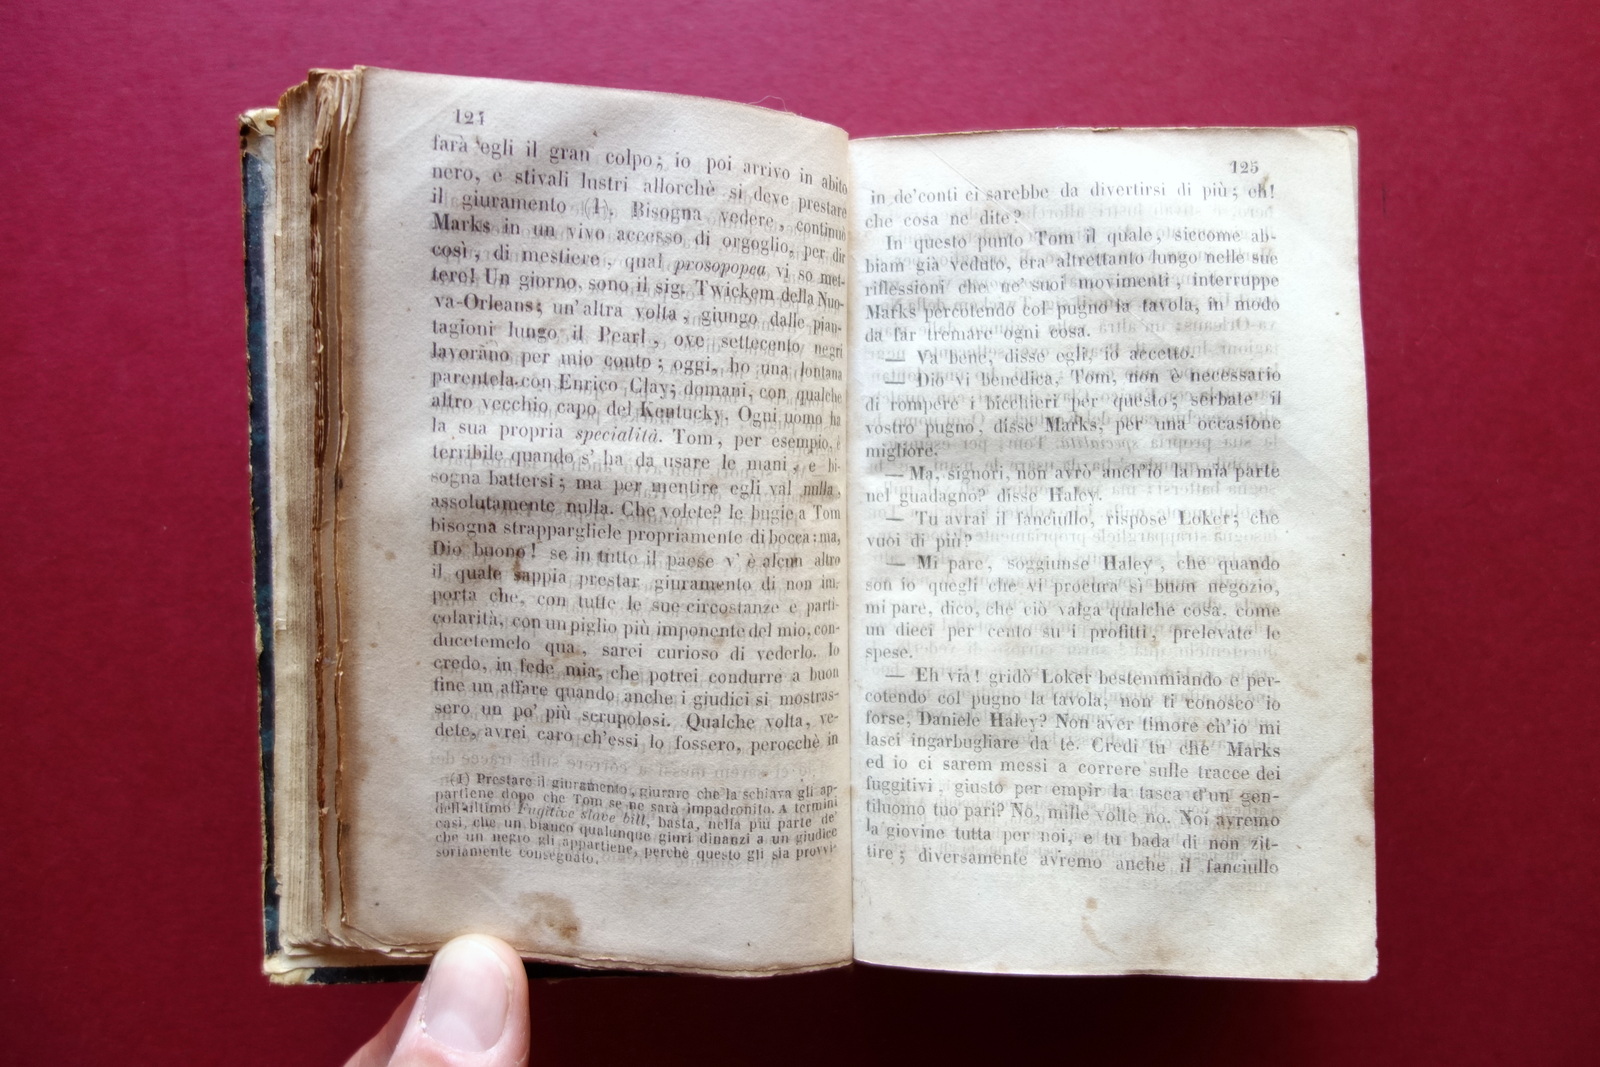 124
farà egli il gran colpo; io poi arrivo in abito
nero, e stivali lustri allorchè si deve prestare
il giuramento (1). Bisogna vedere, continuò
Marks in un vivo accesso di orgoglio, per dir
così, di mestiere, qual prosopopea vi so met-
tere! Un giorno, sono il sig. Twickem della Nuo-
va-Orleans; un'altra volta, giungo dalle pian-
tagioni lungo il Pearl, ove settecento negri
lavorano per mio conto; oggi, ho una lontana
parentela con Enrico Clay; domani, con qualche
altro vecchio capo del Kentucky. Ogni uomo ha
la sua propria specialità. Tom, per esempio, è
terribile quando s' ha da usare le mani, e bi-
sogna battersi; ma per mentire egli val nulla,
assolutamente nulla. Che volete? le bugie a Tom
bisogna strappargliele propriamente di bocca: ma,
Dio buono! se in tutto il paese v' è alcun altro
il quale sappia prestar giuramento di non im-
porta che, con tutte le sue circostanze e parti-
colarità, con un piglio più imponente del mio, con-
ducetemelo qua, sarei curioso di vederlo. Io
credo, in fede mia, che potrei condurre a buon
fine un affare quando anche i giudici si mostras-
sero un po' più scrupolosi. Qualche volta, ve-
dete, avrei caro ch'essi lo fossero, perocchè in
(1) Prestare il giuramento, giurare che la schiava gli ap-
partiene dopo che Tom se ne sarà impadronito. A termini
dell'ultimo Fugitive slave bill, basta, nella più parte de'
casi, che un bianco qualunque giuri dinanzi a un giudice
che un negro gli appartiene, perchè questo gli sia provvi-
soriamente consegnato.
125
in de'conti ci sarebbe da divertirsi di più; eh!
che cosa ne dite?
In questo punto Tom il quale, siccome ab-
biam già veduto, era altrettanto lungo nelle sue
riflessioni che ne' suoi movimenti, interruppe
Marks percotendo col pugno la tavola, in modo
da far tremare ogni cosa.
— Va bene, disse egli, io accetto.
— Dio vi benedica, Tom, non è necessario
di rompere i bicchieri per questo; serbate il
vostro pugno, disse Marks, per una occasione
migliore.
— Ma, signori, non avrò anch'io la mia parte
nel guadagno? disse Haley.
— Tu avrai il fanciullo, rispose Loker; che
vuoi di più?
— Mi pare, soggiunse Haley, che quando
son io quegli che vi procura sì buon negozio,
mi pare, dico, che ciò valga qualche cosa, come
un dieci per cento su i profitti, prelevate le
spese.
— Eh via! gridò Loker bestemmiando e per-
cotendo col pugno la tavola, non ti conosco io
forse, Daniele Haley? Non aver timore ch'io mi
lasci ingarbugliare da te. Credi tu che Marks
ed io ci sarem messi a correre sulle tracce dei
fuggitivi, giusto per empir la tasca d'un gen-
tiluomo tuo pari? No, mille volte no. Noi avremo
la giovine tutta per noi, e tu bada di non zit-
tire; diversamente avremo anche il fanciullo